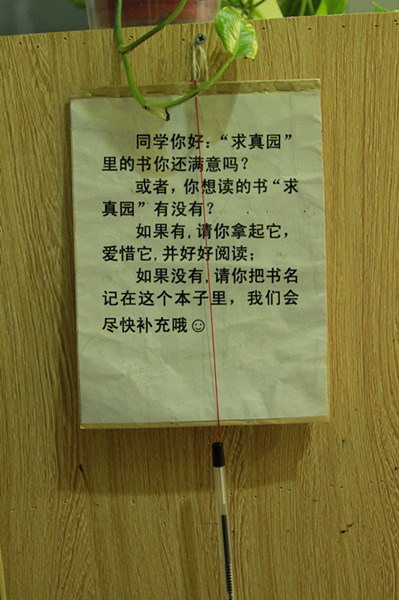 同学你好：“求真园”
里的书你还满意吗？
或者，你想读的书“求
真园”有没有？
如果有,请你拿起它，
爱惜它,并好好阅读；
如果没有,请你把书名
记在这个本子里，我们会
尽快补充哦☺